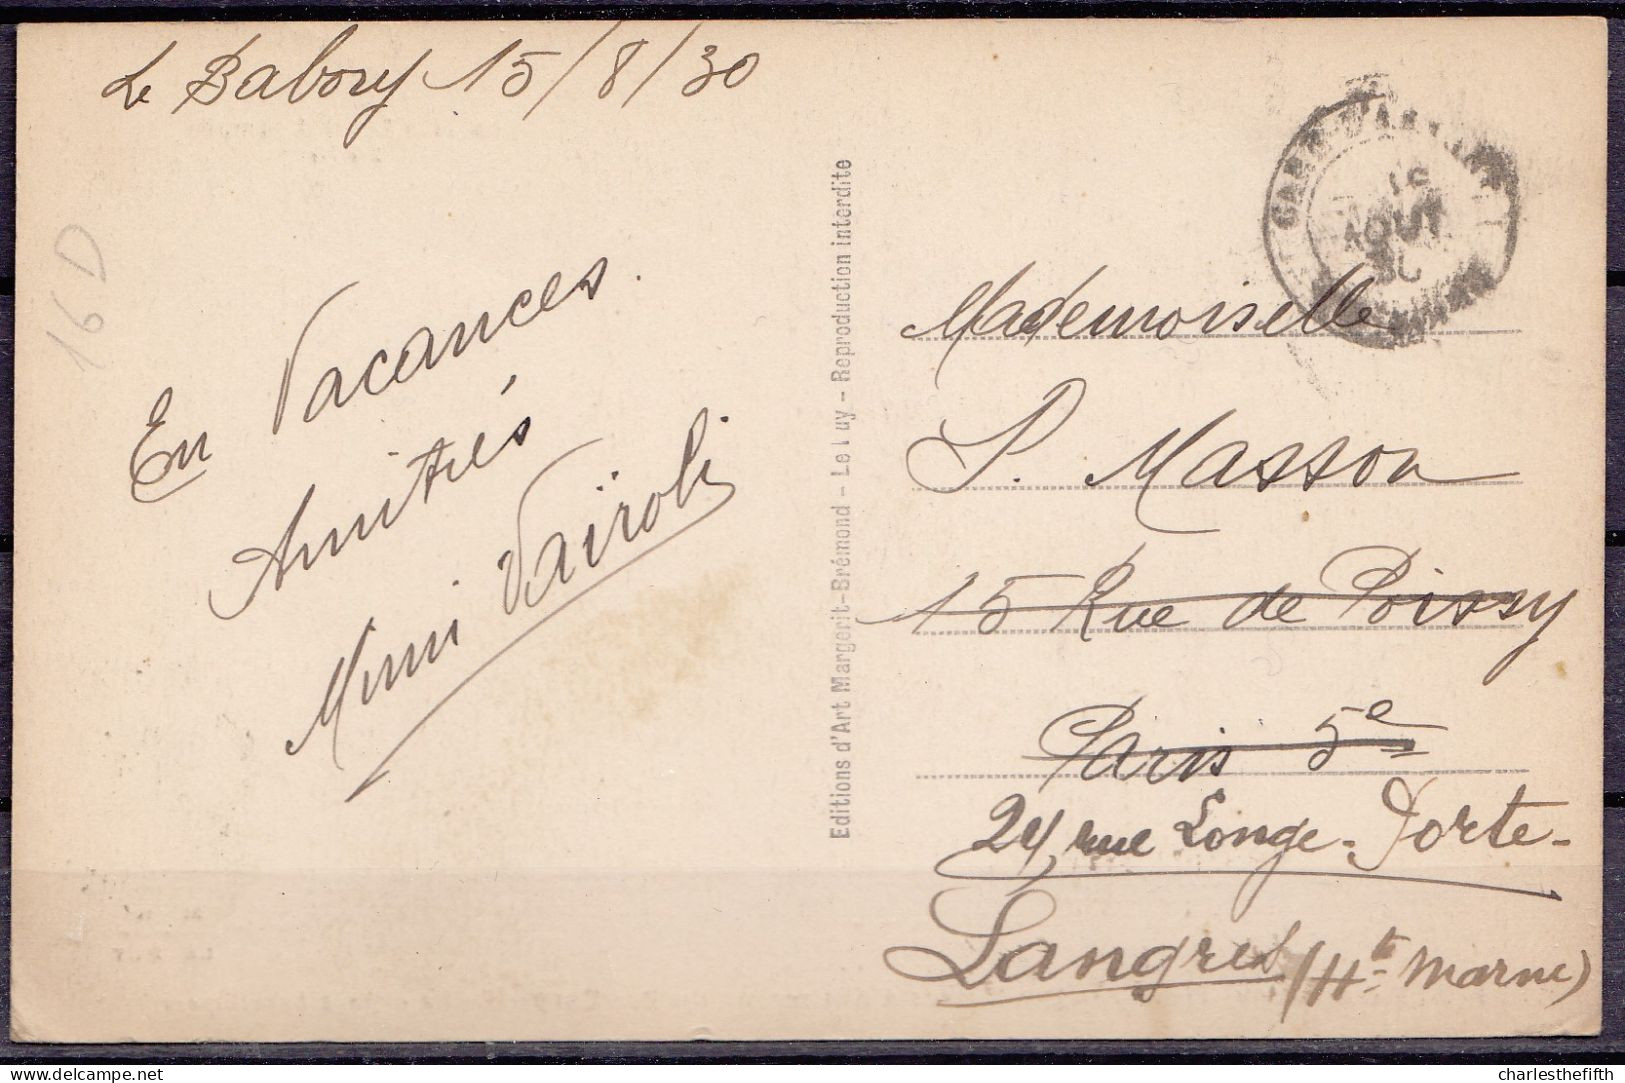 Le Baboury 15/8/30
16 D
En Vacances.
Amitiés
Mimi Vaïroli
Editions d'Art Margerit-Brémond - Le Puy - Reproduction interdite
AOUT
30
Mademoiselle
S. Masson
15 Rue de Poissy
Paris 5e
24, rue Longe-Porte-
Langres (Hte Marne)
charlesthefifth